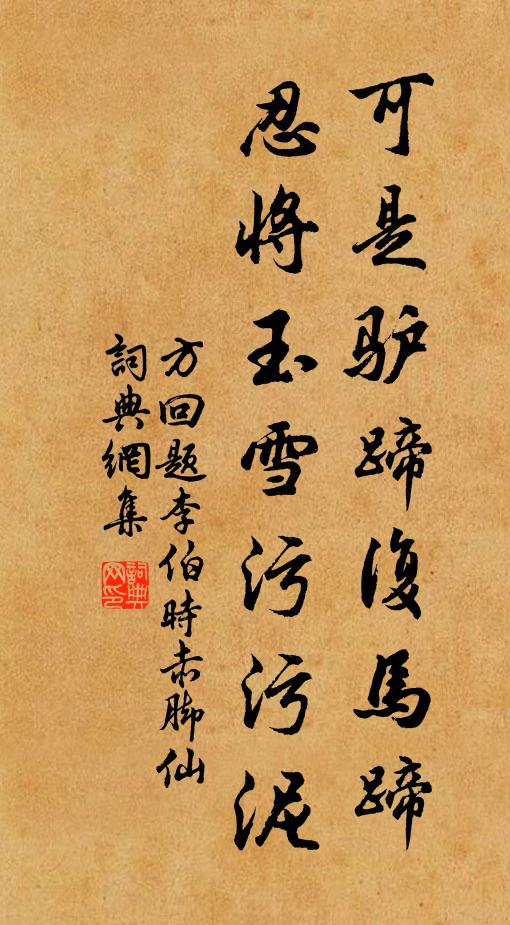 可是驴蹄復馬蹄
忍將玉雪污污泥
方回题李伯時赤脚仙
詞典網集
詞典網印